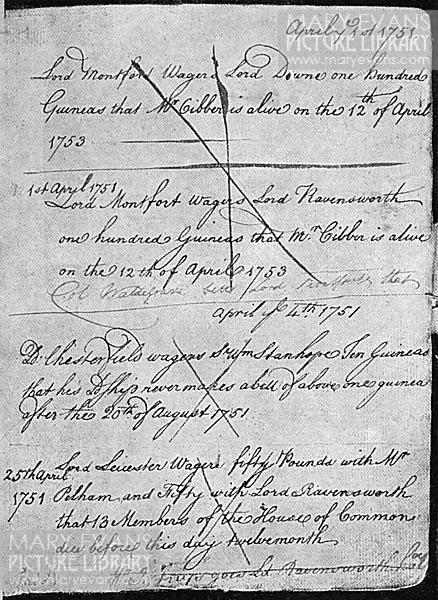 April ye 1st 1751
MARY EVANS
PICTURE LIBRARY
www.maryevans.com
Lord Montford Wagers Lord Downe one hundred
Guineas that Mr Cibber is alive on the 12th of April
1753
1st April 1751
Lord Montfort Wagers Lord Ravensworth
one hundred Guineas that Mr Cibber is alive
on the 12th of April 1753
Col Waldgrave bets Lord that
april ye 4th 1751
Ld Chesterfield wagers Sr Wm Stanhope Ten Guineas
that his Ldship never makes a bett of above one guinea
after the 20th of August 1751
25th April
1751
Lord Leicester Wagers fifty Pounds with Mr
Pelham and Fifty with Lord Ravensworth
that 13 Members of the House of Common
dies before this day twelvemonth
MARY EVANS
PICTURE LIBRARY
www.maryevans.com
goes Ld Ravensworth